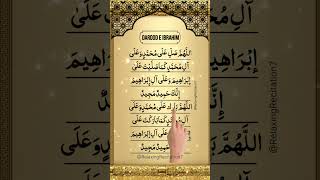 DAROOD E IBRAHIM
اللَّهُمَّ صَلِّ عَلَىٰ مُحَمَّدٍ وَعَلَىٰ
آلِ مُحَمَّدٍ كَمَا صَلَّيْتَ عَلَىٰ
إِبْرَاهِيمَ وَعَلَىٰ آلِ إِبْرَاهِيمَ
إِنَّكَ حَمِيدٌ مَجِيدٌ
اللَّهُمَّ بَارِكْ عَلَىٰ مُحَمَّدٍ وَعَلَىٰ
آلِ كَمَا بَارَكْتَ عَلَىٰ
وَعَلَىٰ آلِ إِبْرَاهِيمَ
حَمِيدٌ مَجِيدٌ
@RelaxingRecitation7
اللَّهُمَّ
إِبْرَاهِيمَ
@RelaxingRecitation7